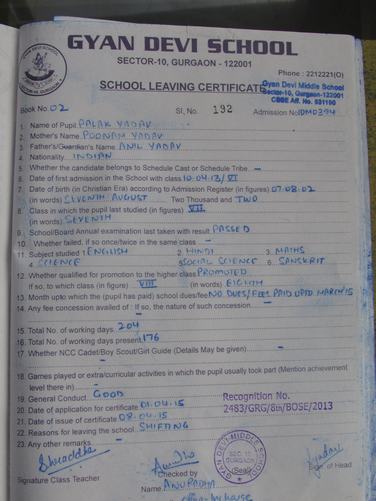 GYAN DEVI SCHOOL
SECTOR-10, GURGAON - 122001
Phone : 2212221(O)
SCHOOL LEAVING CERTIFICATE
Gyan Devi Middle School
Sector-10, Gurgaon-122001
CBSE Aff. No. 531190
Book No. 02 Sl. No. 192 Admission No. 10M0394
1. Name of Pupil PALAK YADAV
2. Mother's Name POONAM YADAV
3. Father's/Guardian's Name ANIL YADAV
4. Nationality INDIAN
5. Whether the candidate belongs to Schedule Cast or Schedule Tribe -
6. Date of first admission in the School with class 10.04.13/VI
7. Date of birth (in Christian Era) according to Admission Register (in figures) 07.08.02
(in words) SEVENTH AUGUST Two Thousand and TWO
8. Class in which the pupil last studied (in figures) VII
(in words) SEVENTH
9. School/Board Annual examination last taken with result PASSED
10. Whether failed, if so once/twice in the same class -
11. Subject studied 1 ENGLISH 2. HINDI 3. MATHS
4. SCIENCE 5 SOCIAL SCIENCE 6. SANSKRIT
12. Whether qualified for promotion to the higher class PROMOTED
If so, to which class (in figure) VIII (in words) EIGHTH
13. Month upto which the (pupil has paid) school dues/fee NO DUES/FEES PAID UPTO MARCH'15
14. Any fee concession availed of : If so, the nature of such concession -
15. Total No. of working days 204
16. Total No. of working days present 176
17. Whether NCC Cadet/Boy Scout/Girl Guide (Details May be given) -
18. Games played or extra/curricular activities in which the pupil usually took part (Mention achievement
level there in) -
19. General Conduct GOOD
20. Date of application for certificate 01.04.15
21. Date of issue of certificate 08.04.15
22. Reasons for leaving the school SHIFTING
23. Any other remarks -
Recognition No.
2483/GRG/8th/BOSE/2013
GYAN DEVI MIDDLE SCHOOL
SEC. 10
GURGAON
(Seal)
Signature Class Teacher
Checked by
Sign. of Head
Name ANURADHA